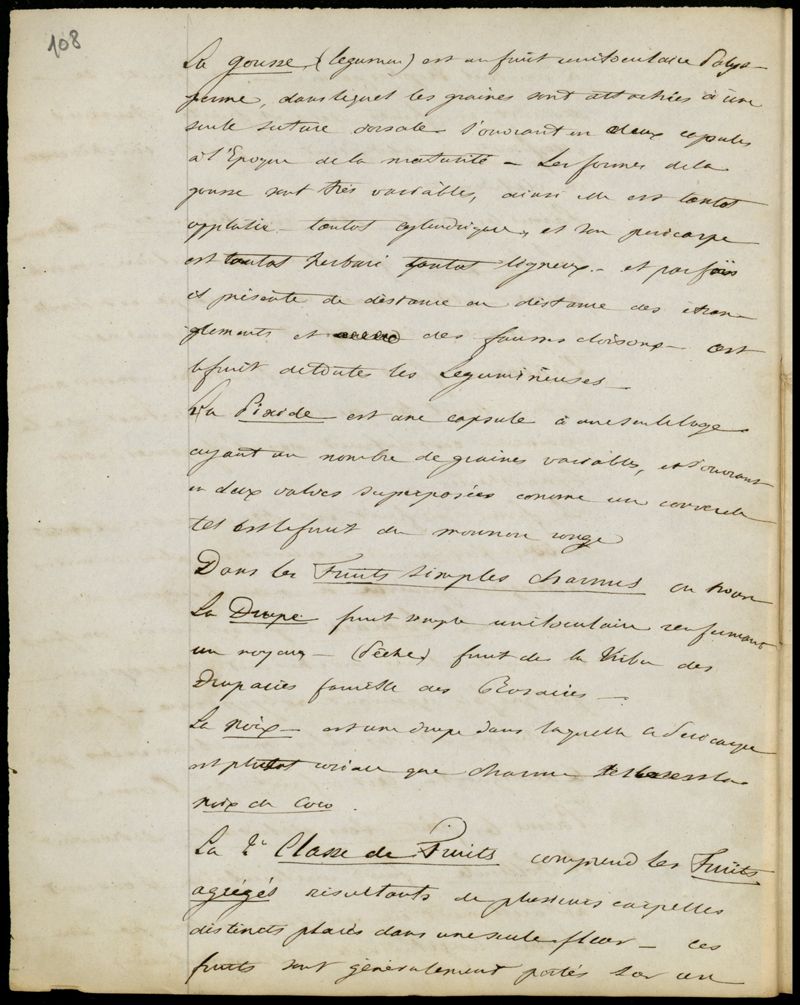 108
La gousse, (legumen) est un fruit uniloculaire Polys-
perme, dans lequel les graines sont attachées à une
seule suture dorsale s'ouvrant en deux capsules
à l'Epoque de la maturité – Les formes de la
gousse sont très variables, ainsi elle est tantot
applatie – tantot cylindrique, et son pericarpe
est tantot herbacé tantot ligneux – et parfois
il présente de distance en distance des etran-
glements et des fausses cloisons – est
le fruit de toutes les Legumineuses –
La Pixide est une capsule à une seule loge
ayant un nombre de graines variables, et s'ouvrant
en deux valves superposées comme un couvercle
tel est le fruit du mouron rouge
Dans les Fruits simples charnus on trouve
La Drupe fruit simple uniloculaire renfermant
un noyau – (Pêche) fruit de la tribu des
Drupacées famille des Rosacées –
La noix – est une drupe dans laquelle le Pericarpe
est plutot coriace que charnu telle est la
noix de Coco.
La 2e Classe de Fruits comprend les Fruits
agrégés résultants de plusieurs carpelles
distincts placés dans une seule fleur – ces
fruits sont généralement portés sur un